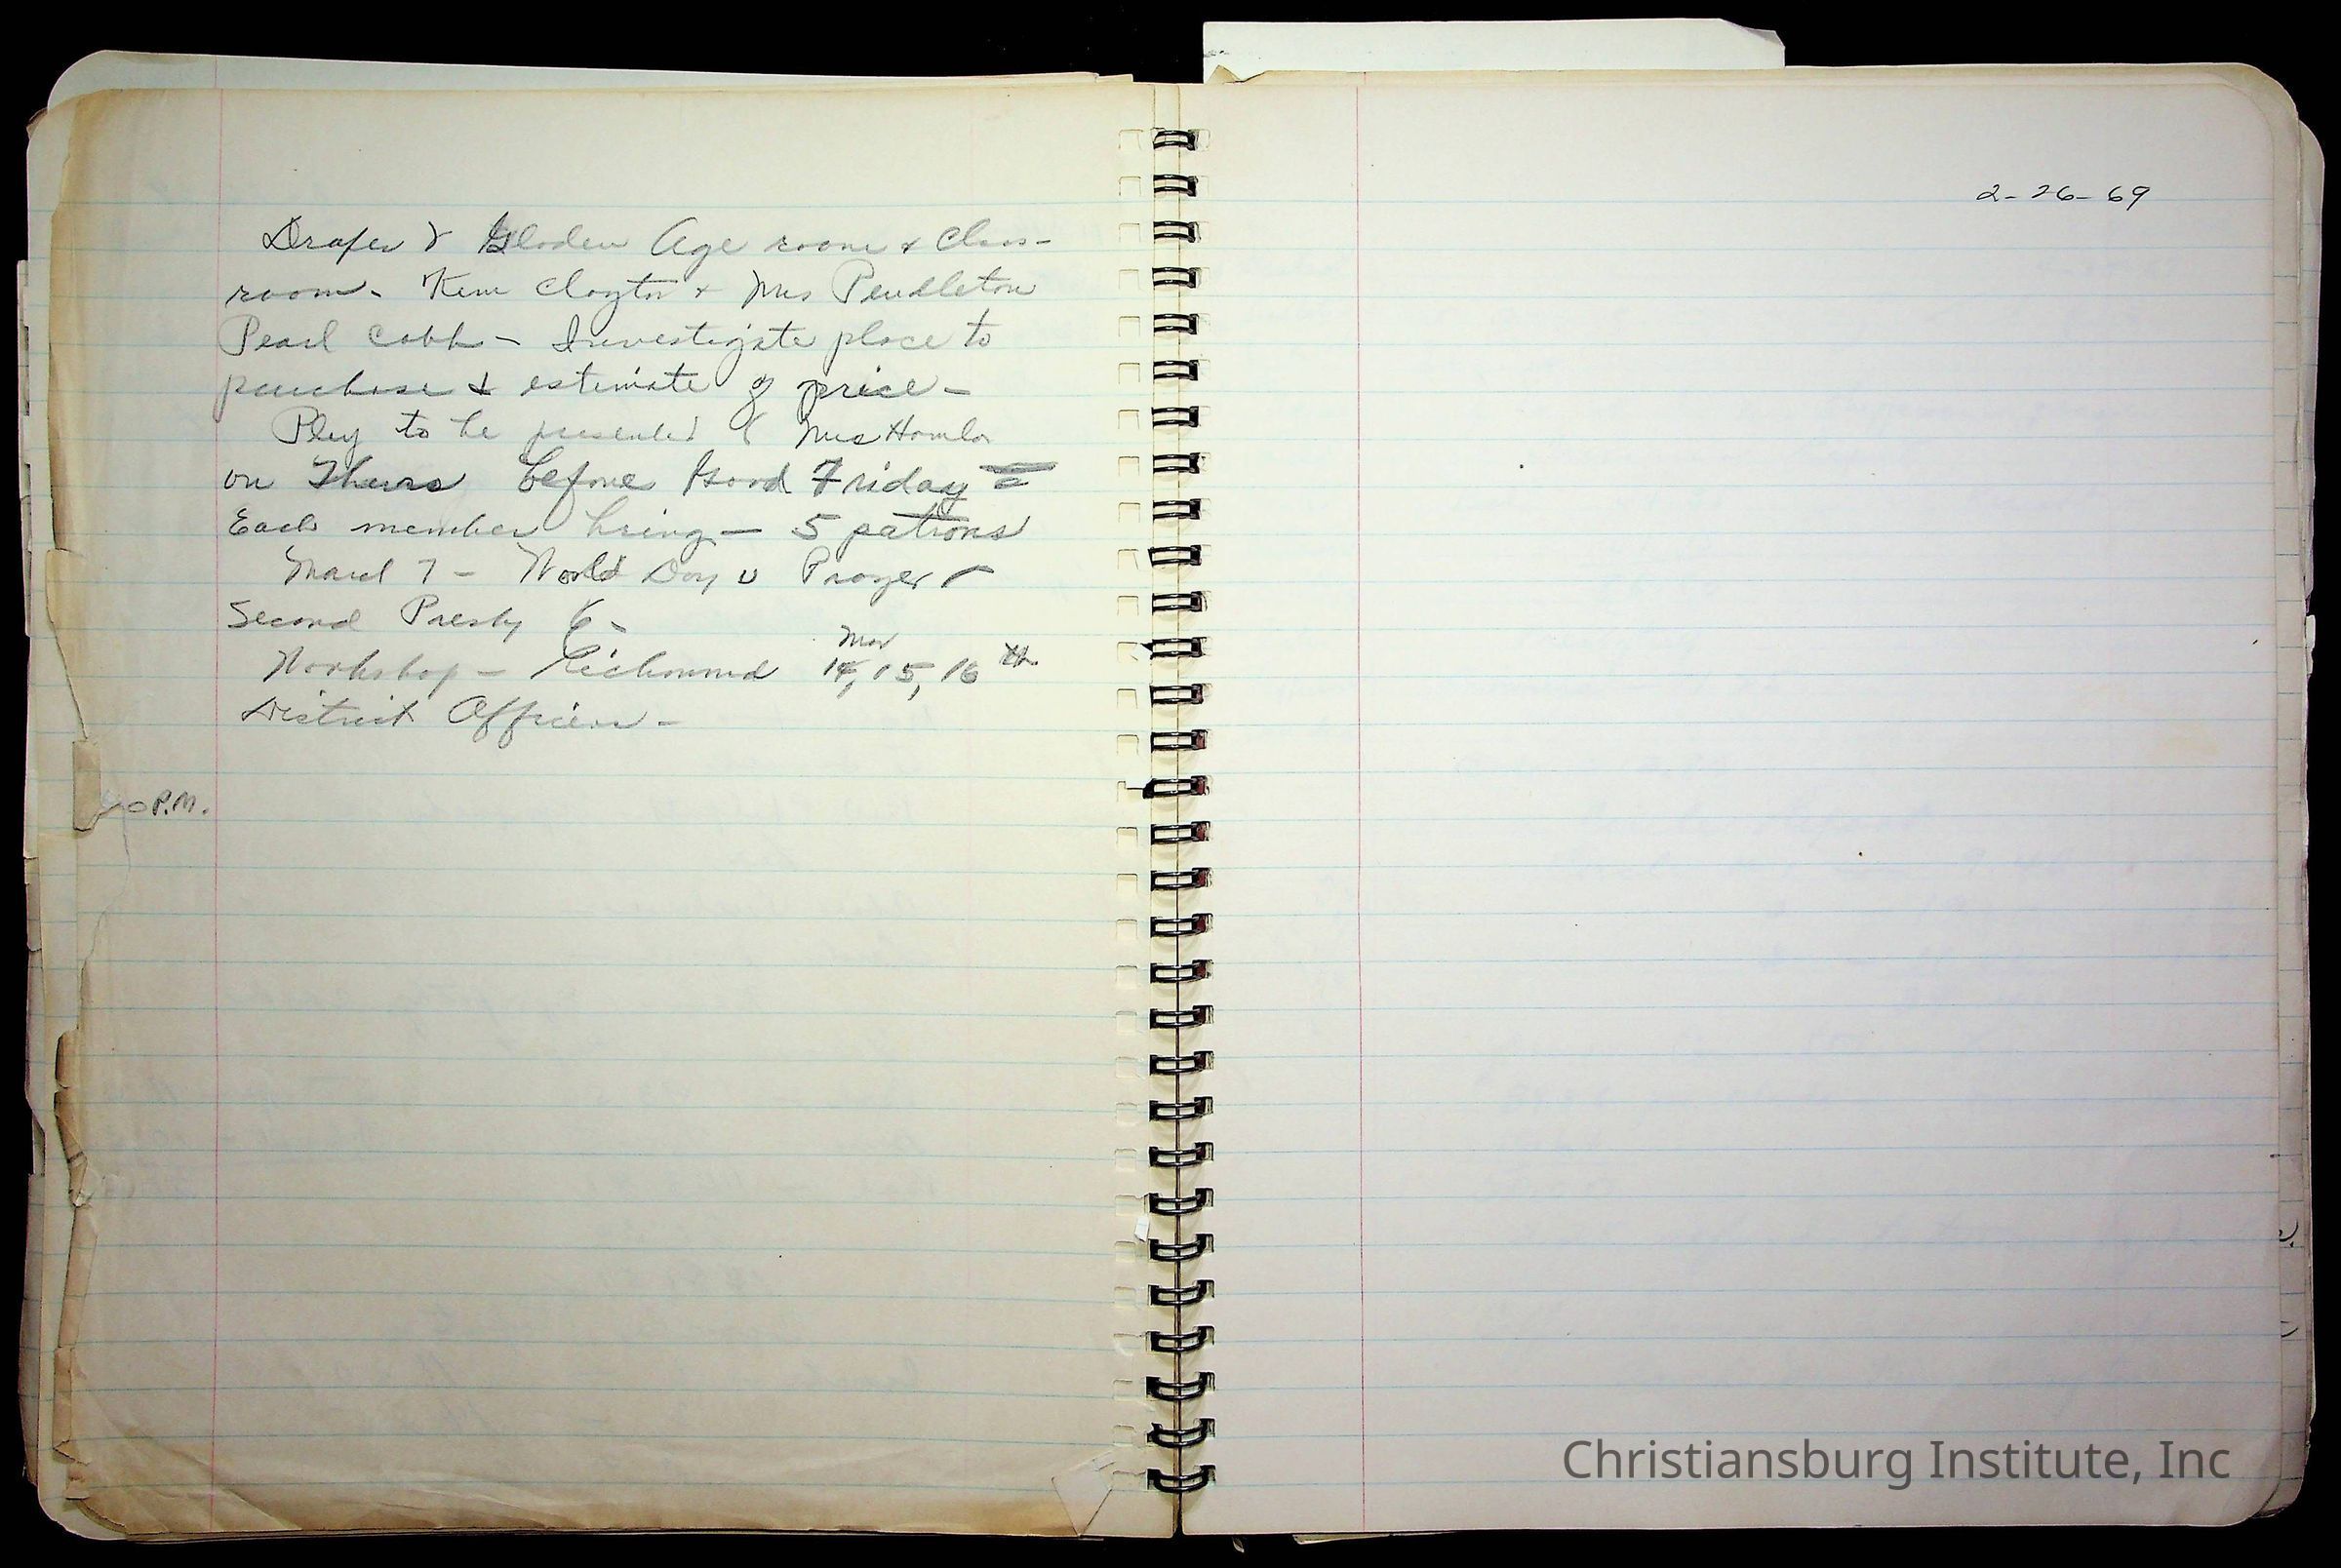 Draper & Golden Age room & Class-
room - Kim Clayton & Mrs Pendleton
Pearl Cobb - Investigate place to
purchase & estimate of price -
Play to be presented Mrs
on Thurs before Good Friday =
Each member bring - 5 patrons
March 7 - World Day o Prayer -
Second Presby C -
Mar
Workshop - Richmond 14, 15, 16 th.
District Officers -
P.M.
2-26-69
Christiansburg Institute, Inc